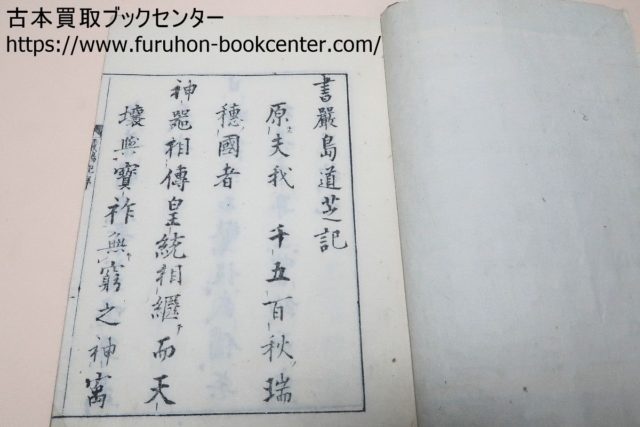 古本買取ブックセンター
https://www.furuhon-bookcenter.com/
書嚴島道芝記
原夫我 千五百秋瑞
穗國者
神器相傳皇統相繼而天
壤無寶祚無窮之神寓